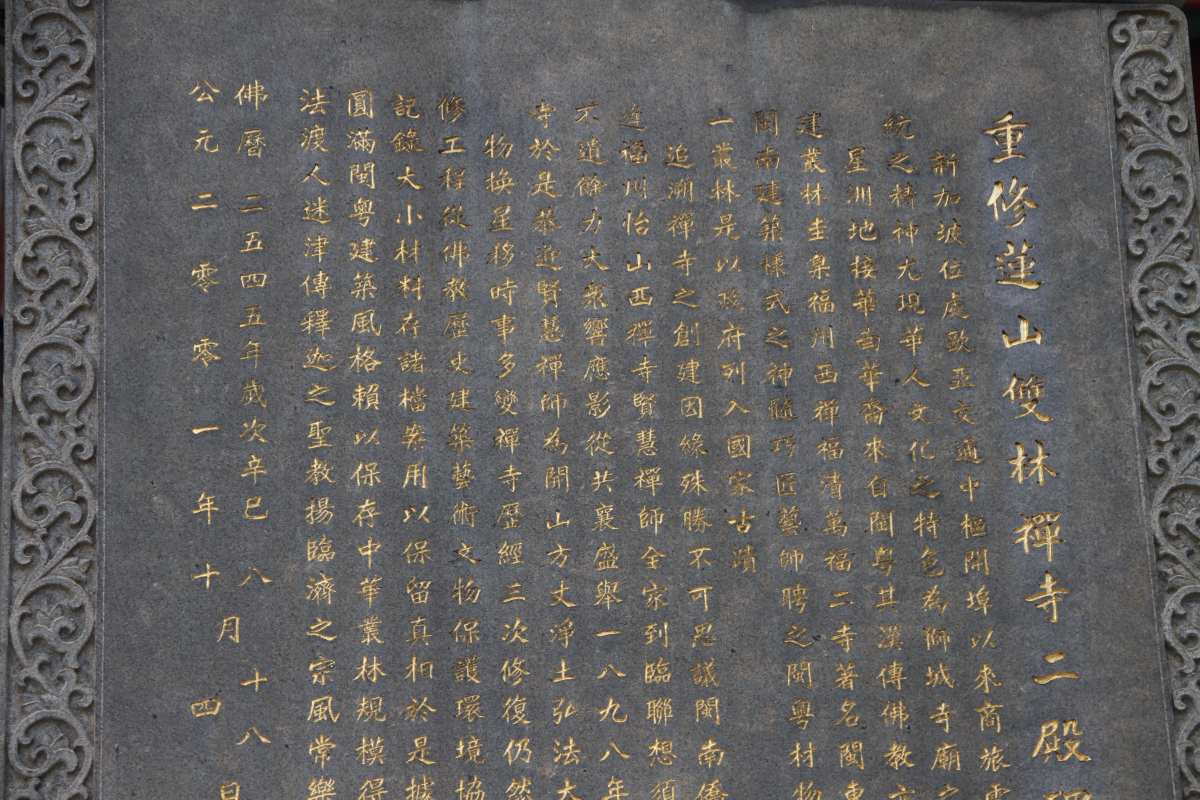 重修蓮山雙林禪寺二殿
新加坡位處歐亞交通中樞開埠以來商旅
統之精神尤現華人文化之特色為獅城寺廟之
星洲地接華南華裔來自閩粤其漢傳佛教
建叢林圭臬福州西禪福清萬福二寺著名閩東
閩南建築樣式之神髓巧匠藝師聘之閩粤材物
一叢林是以政府列入國家古蹟
追溯禪寺之創建因緣殊勝不可思議閩南僑
進福州怡山西禪寺賢慧禪師全家到臨聯想須
不遺餘力大衆響應影從共襄盛舉一八九八年
寺於是恭迎賢慧禪師為開山方丈淨土弘法大
物換星移時事多變禪寺歷經三次修復仍然
修工程從佛教歷史建築藝術文物保護環境協
記錄大小材料存諸檔案用以保留真相於是據
圓滿閩粤建築風格賴以保存中華叢林規模得
法渡人迷津傳釋迦之聖教揚臨濟之宗風常樂
佛曆二五四五年歲次辛巳八月十八日
公元二零零一年十月四